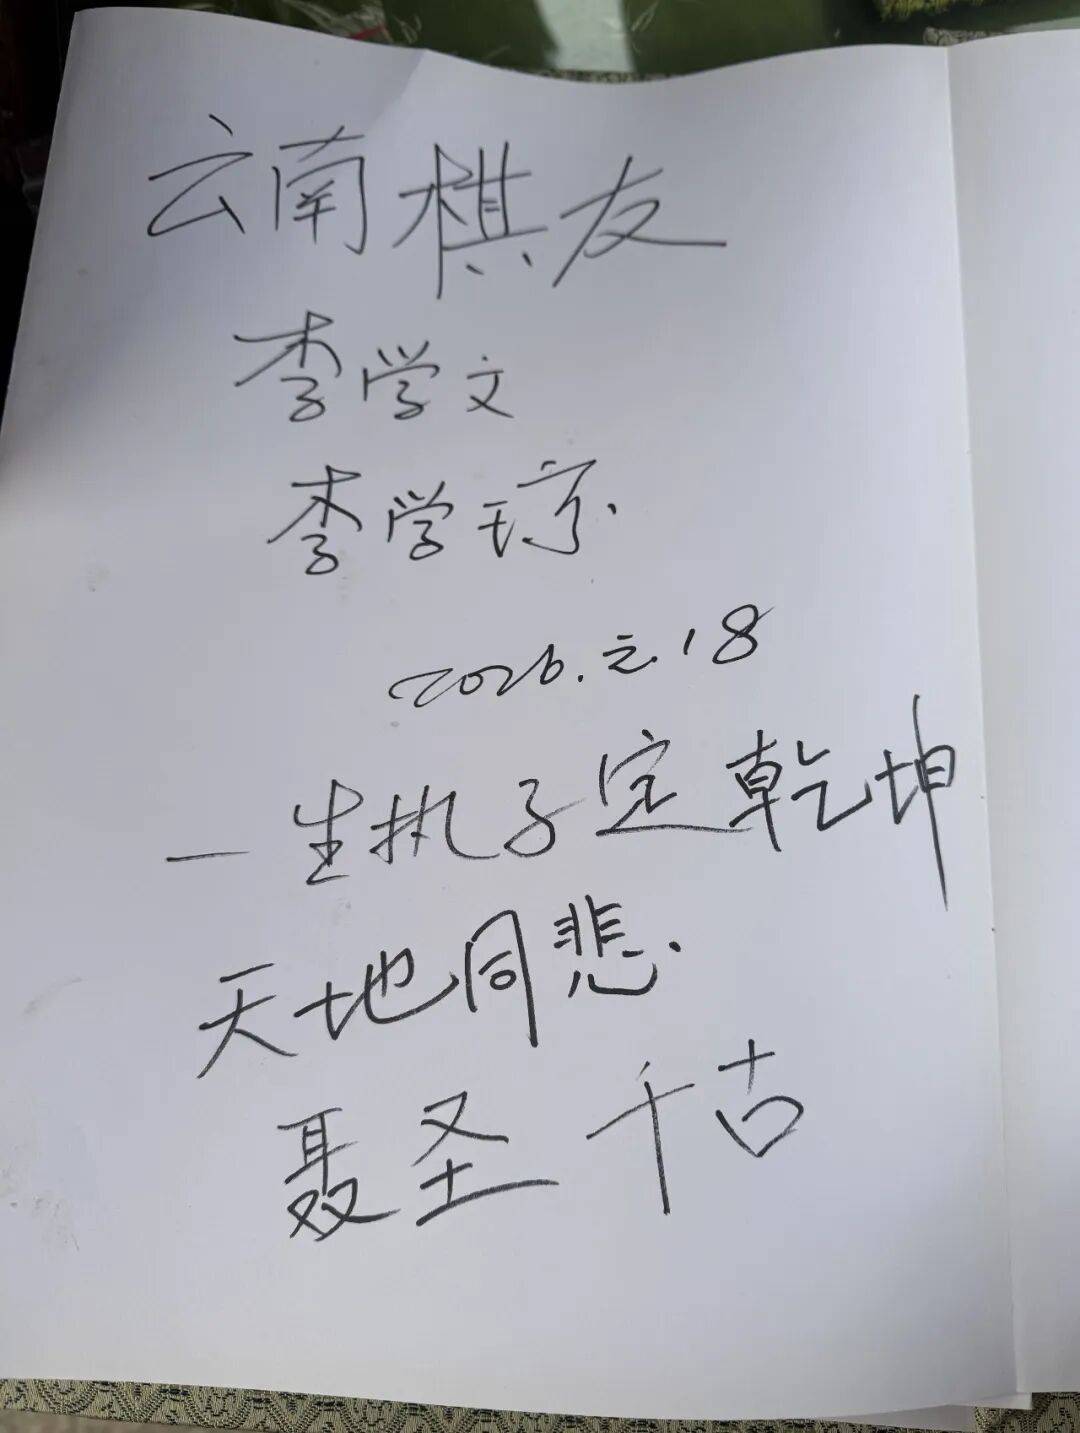 云南棋友
李学文
李学琼
2026.元.18
一生执子定乾坤
天地同悲.
聂圣千古